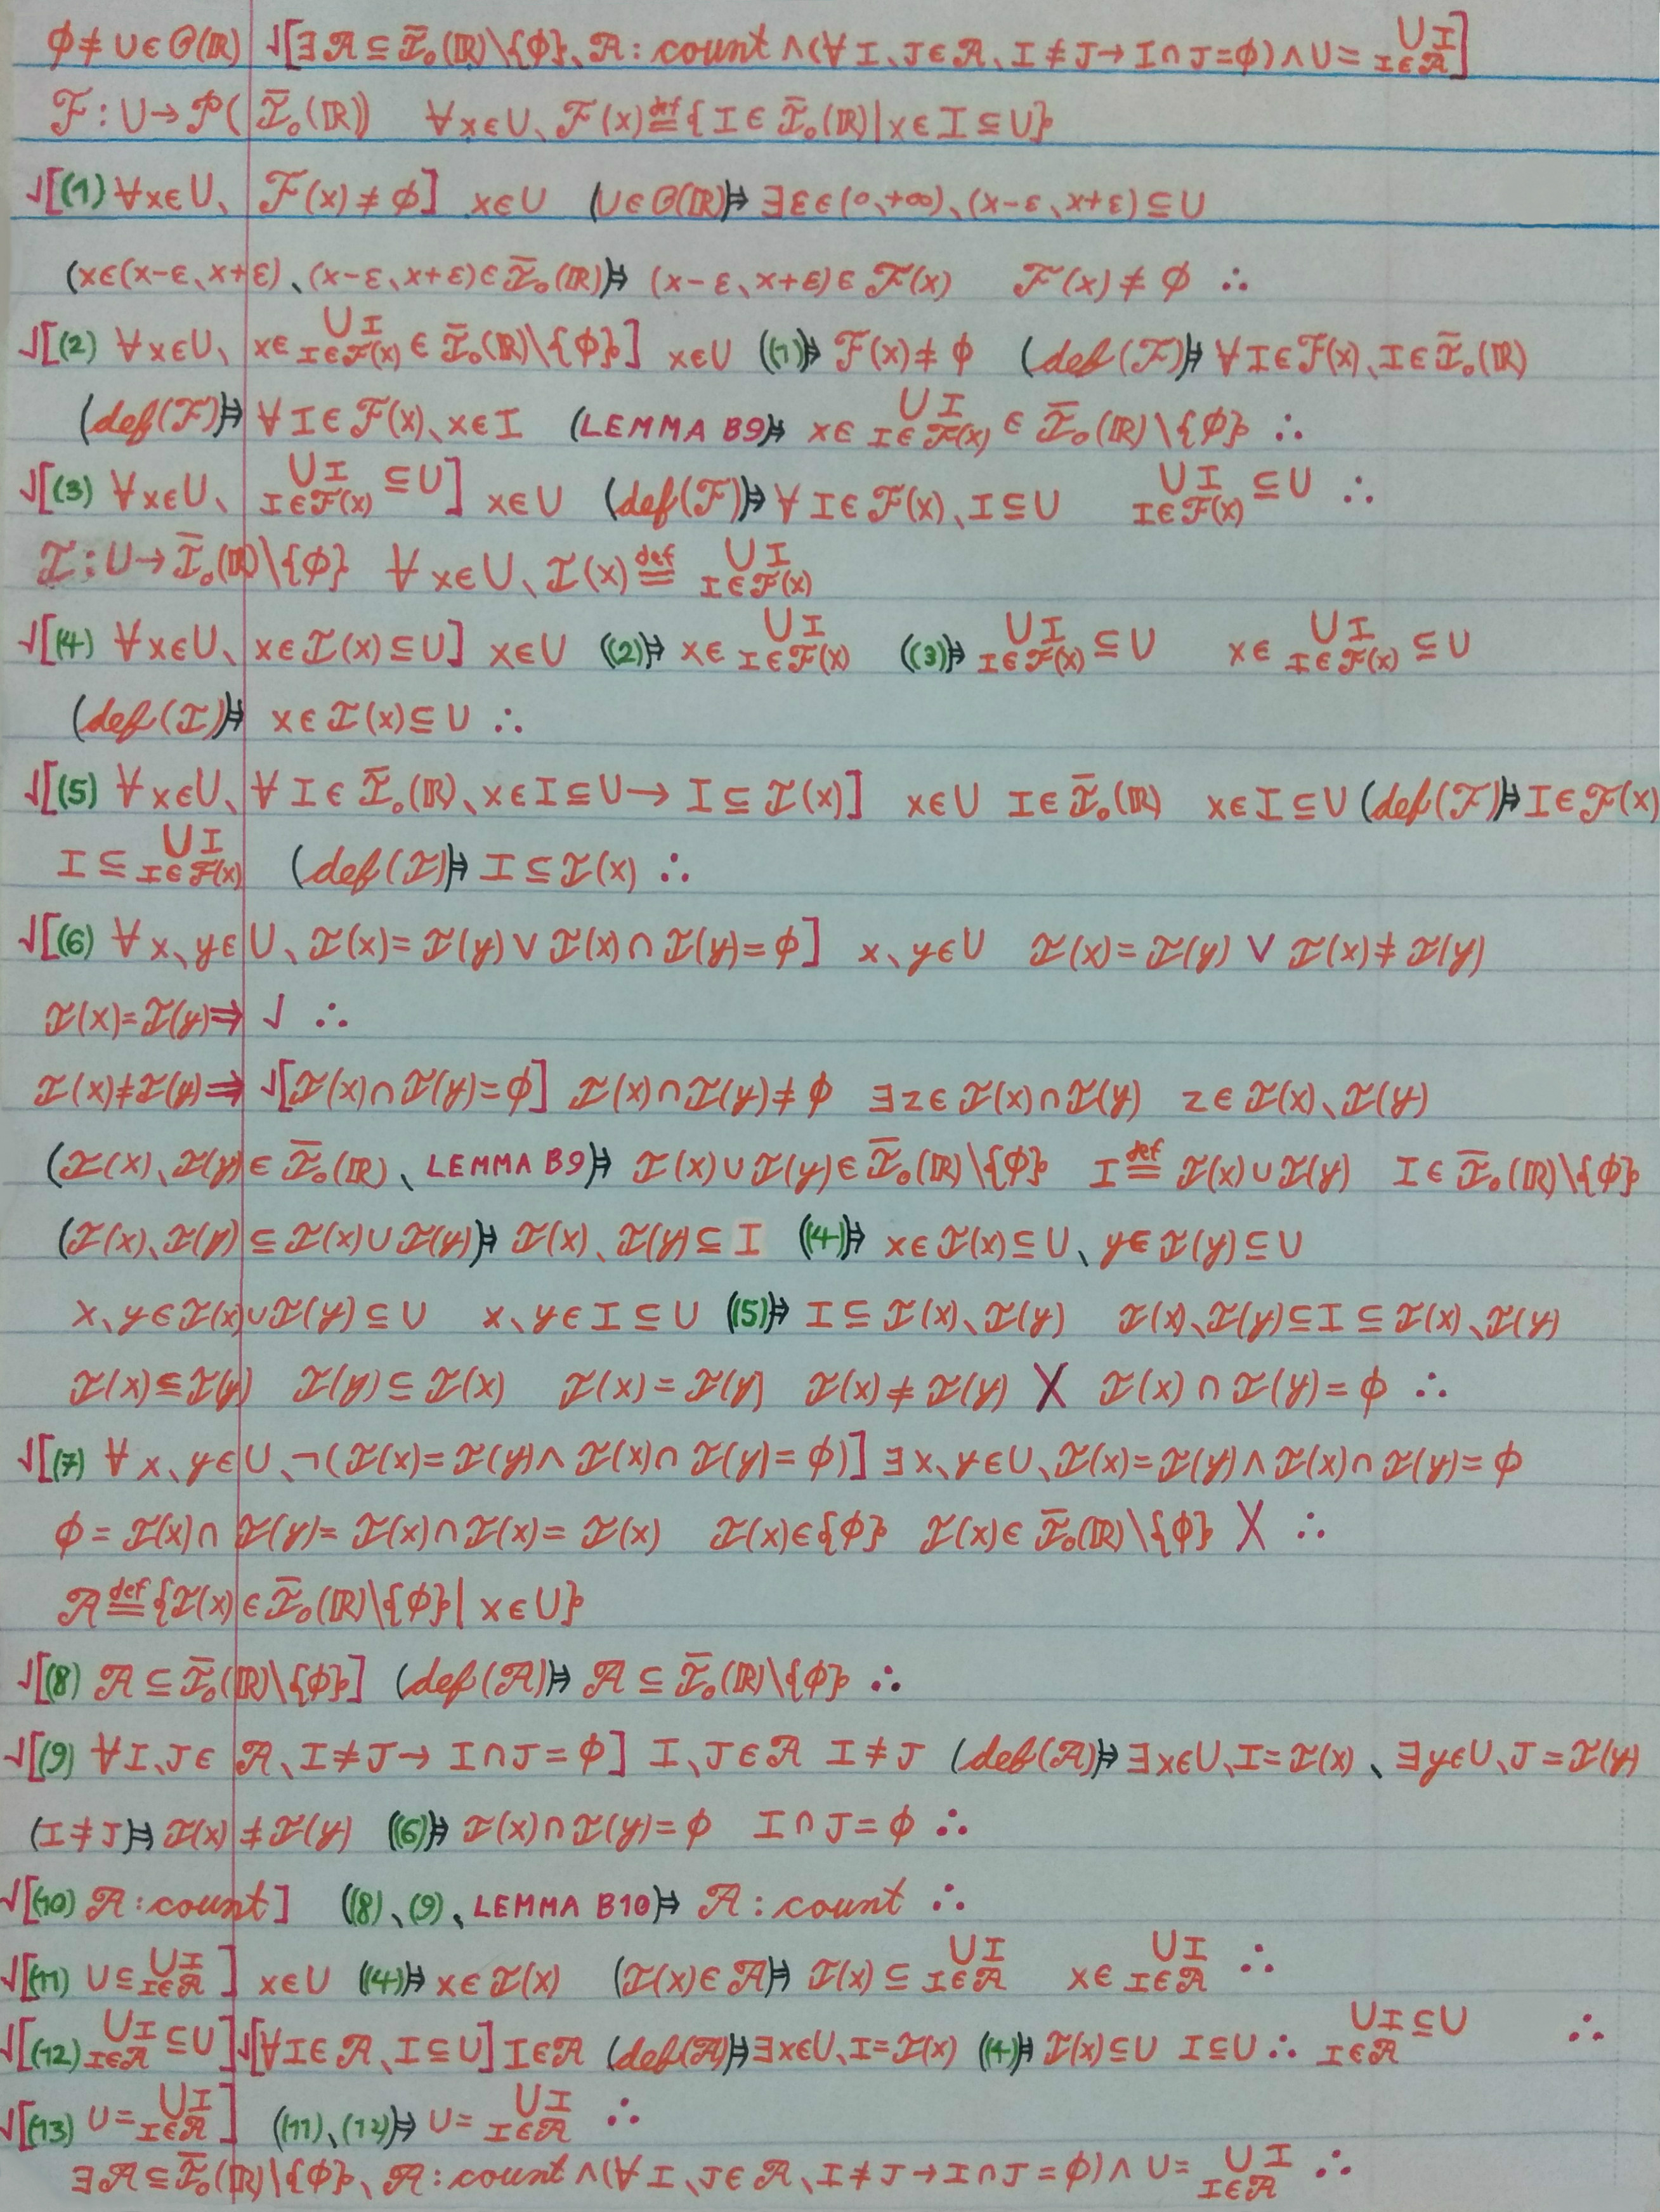 ϕ ≠ U ∈ 𝒪(ℝ) √[∃𝒜 ⊆ ℐ̄₀(ℝ)\{ϕ}、𝒜 : count ∧ (∀I、J ∈ 𝒜、I ≠ J → I ∩ J = ϕ) ∧ U = ∪_{I∈𝒜} I]
ℱ : U → 𝒫(ℐ̄₀(ℝ)) ∀x∈U、ℱ(x) ≝ {I ∈ ℐ̄₀(ℝ) | x ∈ I ⊆ U}
√[(1) ∀x∈U、ℱ(x) ≠ ϕ] x∈U (U∈𝒪(ℝ)⤇ ∃ε∈(0、+∞)、(x-ε、x+ε) ⊆ U
(x∈(x-ε、x+ε)、(x-ε、x+ε)∈ℐ̄₀(ℝ)⤇ (x-ε、x+ε) ∈ ℱ(x) ℱ(x) ≠ ϕ ∴
√[(2) ∀x∈U、x∈ ∪_{I∈ℱ(x)} I ∈ ℐ̄₀(ℝ)\{ϕ}] x∈U ((1)⤇ ℱ(x) ≠ ϕ (def(ℱ)⤇ ∀I∈ℱ(x)、I∈ℐ̄₀(ℝ)
(def(ℱ)⤇ ∀I∈ℱ(x)、x∈I (LEMMA B9)⤇ x∈ ∪_{I∈ℱ(x)} I ∈ ℐ̄₀(ℝ)\{ϕ} ∴
√[(3) ∀x∈U、∪_{I∈ℱ(x)} I ⊆ U] x∈U (def(ℱ)⤇ ∀I∈ℱ(x)、I⊆U ∪_{I∈ℱ(x)} I ⊆ U ∴
ℐ : U → ℐ̄₀(ℝ)\{ϕ} ∀x∈U、ℐ(x) ≝ ∪_{I∈ℱ(x)} I
√[(4) ∀x∈U、x∈ℐ(x)⊆U] x∈U ((2)⤇ x∈ ∪_{I∈ℱ(x)} I ((3)⤇ ∪_{I∈ℱ(x)} I ⊆ U x∈ ∪_{I∈ℱ(x)} I ⊆ U
(def(ℐ)⤇ x∈ℐ(x)⊆U ∴
√[(5) ∀x∈U、∀I∈ℐ̄₀(ℝ)、x∈I⊆U → I⊆ℐ(x)] x∈U I∈ℐ̄₀(ℝ) x∈I⊆U (def(ℱ)⤇ I∈ℱ(x)
I ⊆ ∪_{I∈ℱ(x)} I (def(ℐ)⤇ I⊆ℐ(x) ∴
√[(6) ∀x、y∈U、ℐ(x)=ℐ(y) ∨ ℐ(x)∩ℐ(y)=ϕ] x、y∈U ℐ(x)=ℐ(y) ∨ ℐ(x)≠ℐ(y)
ℐ(x)=ℐ(y)⇒ √ ∴
ℐ(x)≠ℐ(y)⇒ √[ℐ(x)∩ℐ(y)=ϕ] ℐ(x)∩ℐ(y)≠ϕ ∃z∈ℐ(x)∩ℐ(y) z∈ℐ(x)、ℐ(y)
(ℐ(x)、ℐ(y)∈ℐ̄₀(ℝ)、LEMMA B9)⤇ ℐ(x)∪ℐ(y)∈ℐ̄₀(ℝ)\{ϕ} I ≝ ℐ(x)∪ℐ(y) I∈ℐ̄₀(ℝ)\{ϕ}
(ℐ(x)、ℐ(y)⊆ℐ(x)∪ℐ(y)⤇ ℐ(x)、ℐ(y)⊆I ((4)⤇ x∈ℐ(x)⊆U、y∈ℐ(y)⊆U
x、y∈ℐ(x)∪ℐ(y)⊆U x、y∈I⊆U ((5)⤇ I⊆ℐ(x)、ℐ(y) ℐ(x)、ℐ(y)⊆I⊆ℐ(x)、ℐ(y)
ℐ(x)⊆ℐ(y) ℐ(y)⊆ℐ(x) ℐ(x)=ℐ(y) ℐ(x)≠ℐ(y) X ℐ(x)∩ℐ(y)=ϕ ∴
√[(7) ∀x、y∈U、¬(ℐ(x)=ℐ(y)∧ℐ(x)∩ℐ(y)=ϕ)] ∃x、y∈U、ℐ(x)=ℐ(y)∧ℐ(x)∩ℐ(y)=ϕ
ϕ=ℐ(x)∩ℐ(y)=ℐ(x)∩ℐ(x)=ℐ(x) ℐ(x)∈{ϕ} ℐ(x)∈ℐ̄₀(ℝ)\{ϕ} X ∴
𝒜 ≝ {ℐ(x)∈ℐ̄₀(ℝ)\{ϕ} | x∈U}
√[(8) 𝒜⊆ℐ̄₀(ℝ)\{ϕ}] (def(𝒜)⤇ 𝒜⊆ℐ̄₀(ℝ)\{ϕ} ∴
√[(9) ∀I、J∈𝒜、I≠J→ I∩J=ϕ] I、J∈𝒜 I≠J (def(𝒜)⤇ ∃x∈U、I=ℐ(x)、∃y∈U、J=ℐ(y)
(I≠J)⤇ ℐ(x)≠ℐ(y) ((6)⤇ ℐ(x)∩ℐ(y)=ϕ I∩J=ϕ ∴
√[(10) 𝒜 : count] ((8)、(9)、LEMMA B10)⤇ 𝒜 : count ∴
√[(11) U⊆ ∪_{I∈𝒜} I] x∈U ((4)⤇ x∈ℐ(x) (ℐ(x)∈𝒜)⤇ ℐ(x)⊆ ∪_{I∈𝒜} I x∈ ∪_{I∈𝒜} I ∴
√[(12) ∪_{I∈𝒜} I ⊆U] √[∀I∈𝒜、I⊆U] I∈𝒜 (def(𝒜)⤇ ∃x∈U、I=ℐ(x) ((4)⤇ ℐ(x)⊆U I⊆U ∴ ∪_{I∈𝒜} I ⊆U ∴
√[(13) U= ∪_{I∈𝒜} I] ((11)、(12)⤇ U= ∪_{I∈𝒜} I ∴
∃𝒜⊆ℐ̄₀(ℝ)\{ϕ}、𝒜 : count ∧(∀I、J∈𝒜、I≠J→I∩J=ϕ)∧ U= ∪_{I∈𝒜} I ∴